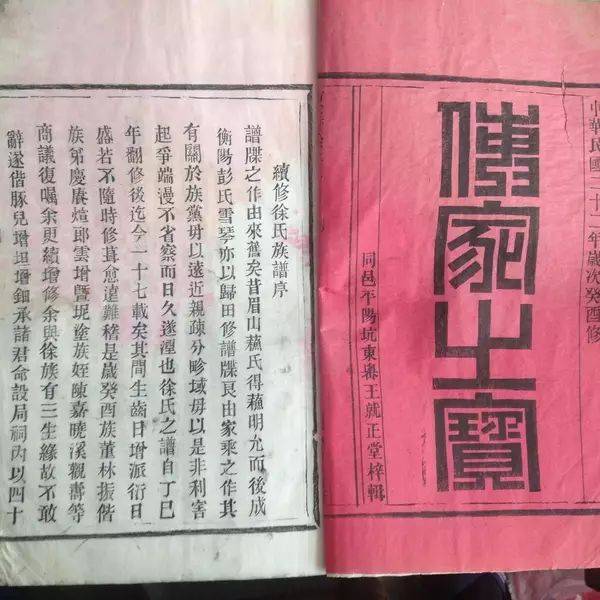 中華民國二十二年歲次癸酉修
傳家之寶
同邑平陽坑東審王就正堂梓輯
續修徐氏族譜序
譜牒之作由來舊矣昔眉山蘓氏得蘓明允而後成
衡陽彭氏雪琴亦以歸田修譜牒良由家乘之作其
有關於族黨毋以遠近親疎分畛域毋以是非利害
起爭端漫不省察而日久遂湮也徐氏之譜自丁巳
年翻修後迄今一十七載矣其間生齒日增派衍日
盛若不隨時修葺愈遠難稽是歲癸酉族董林振偕
族弟慶賡煊郎雲增暨坭塗族姪陳嘉曉溪觀壽等
商議復囑余更續增修余與徐族有三生緣故不敢
辭遂偕豚兒增坦增鈿承諸君命設局祠內以四十